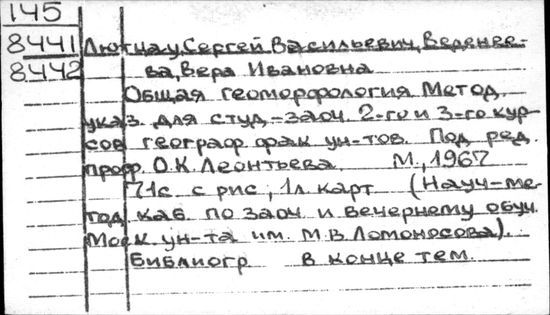 145
8441 Лютцау, Сергей Васильевич, Веденее-
8442 ва, Вера Ивановна
Общая геоморфология Метод.
указ. для студ.-заоч. 2-го и 3-го кур-
сов географ. фак. ун-тов. Под ред.
проф. О.К. Леонтьева. М., 1967
71с с рис, 1л. карт (Науч-ме-
тод. каб. по заоч. и вечернему обуч.
Моск. ун-та им. М.В. Ломоносова).
Библиогр в конце тем.